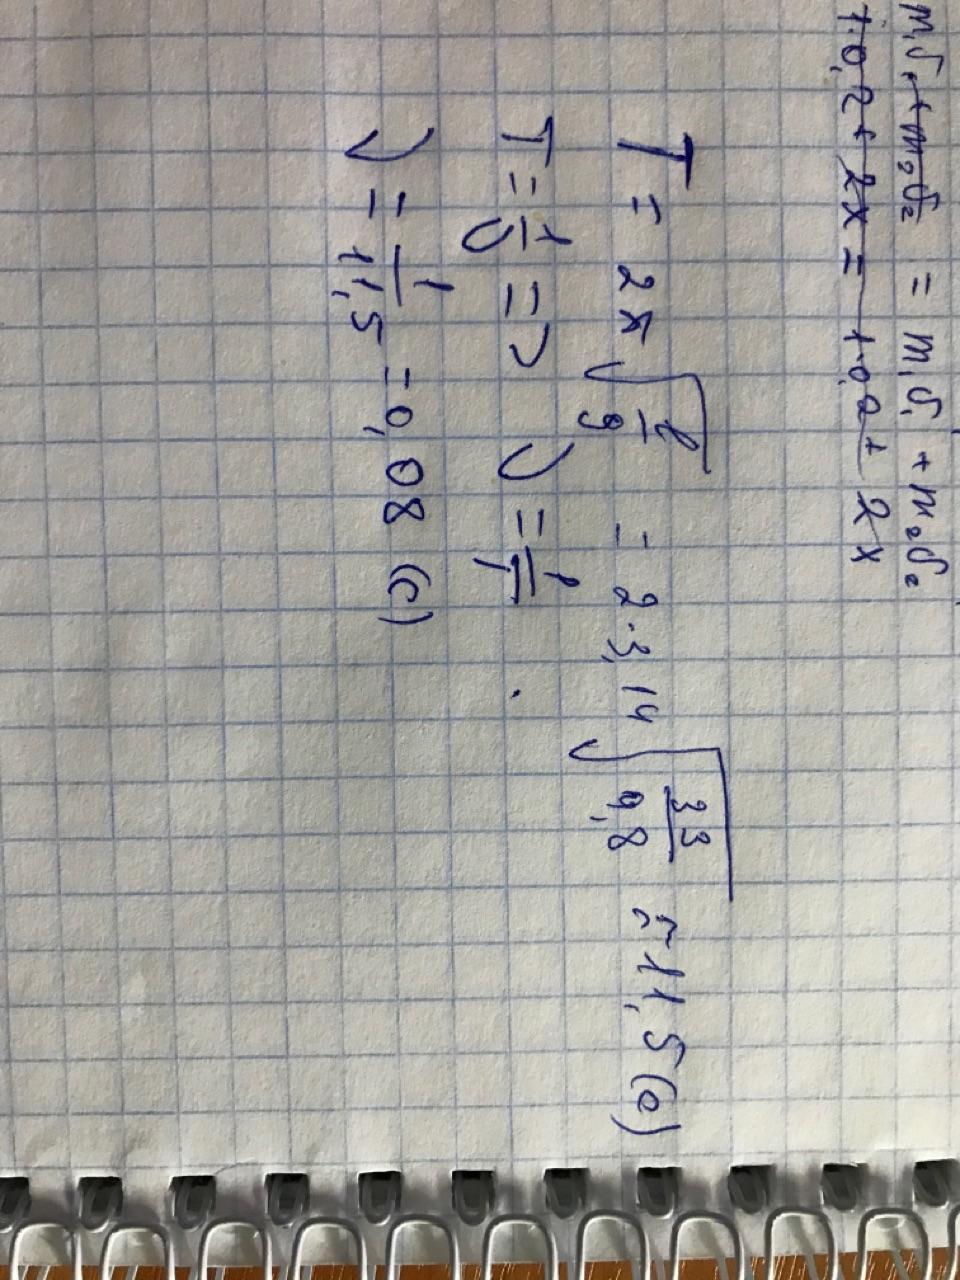 m₁υ₁ + m₂υ₂ = m₁υ₁ + m₂υ₂
1·0,2 + 2x = 1·0,2 + 2x
T = 2π√(l/g) = 2·3,14 √(33/9,8) = 11,5 (с)
T = 1/υ => υ = 1/T
υ = 1/11,5 = 0,08 (с)